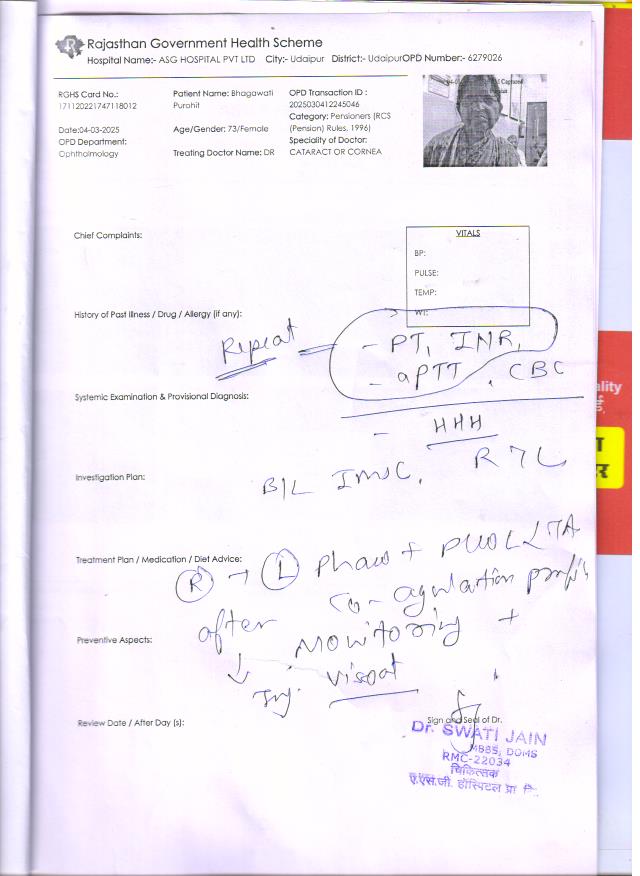 Rajasthan Government Health Scheme
Hospital Name:- ASG HOSPITAL PVT LTD City:- Udaipur District:- Udaipur OPD Number:- 6279026
RGHS Card No.:
171120221747118012
Date:04-03-2025
OPD Department:
Ophthalmology
Patient Name: Bhagawati
Purohit
Age/Gender: 73/Female
Treating Doctor Name: DR
OPD Transaction ID :
2025030412245046
Category: Pensioners (RCS
(Pension) Rules, 1996)
Speciality of Doctor:
CATARACT OR CORNEA
Chief Complaints:
VITALS
BP:
PULSE:
TEMP:
WT:
History of Past Illness / Drug / Allergy (if any):
Repeat
- PT, INR,
- aPTT , CBC
Systemic Examination & Provisional Diagnosis:
- HHH
R 7 L
Investigation Plan:
B/L IMSC.
Treatment Plan / Medication / Diet Advice:
R → L Phaco +
after
Monitoring +
Preventive Aspects:
Inj. Viscoat
Review Date / After Day (s):
Sign and Seal of Dr.
Dr. SWATI JAIN
MBBS, DOMS
RMC-22034
चिकित्सक
ए.एस.जी. हॉस्पिटल प्रा